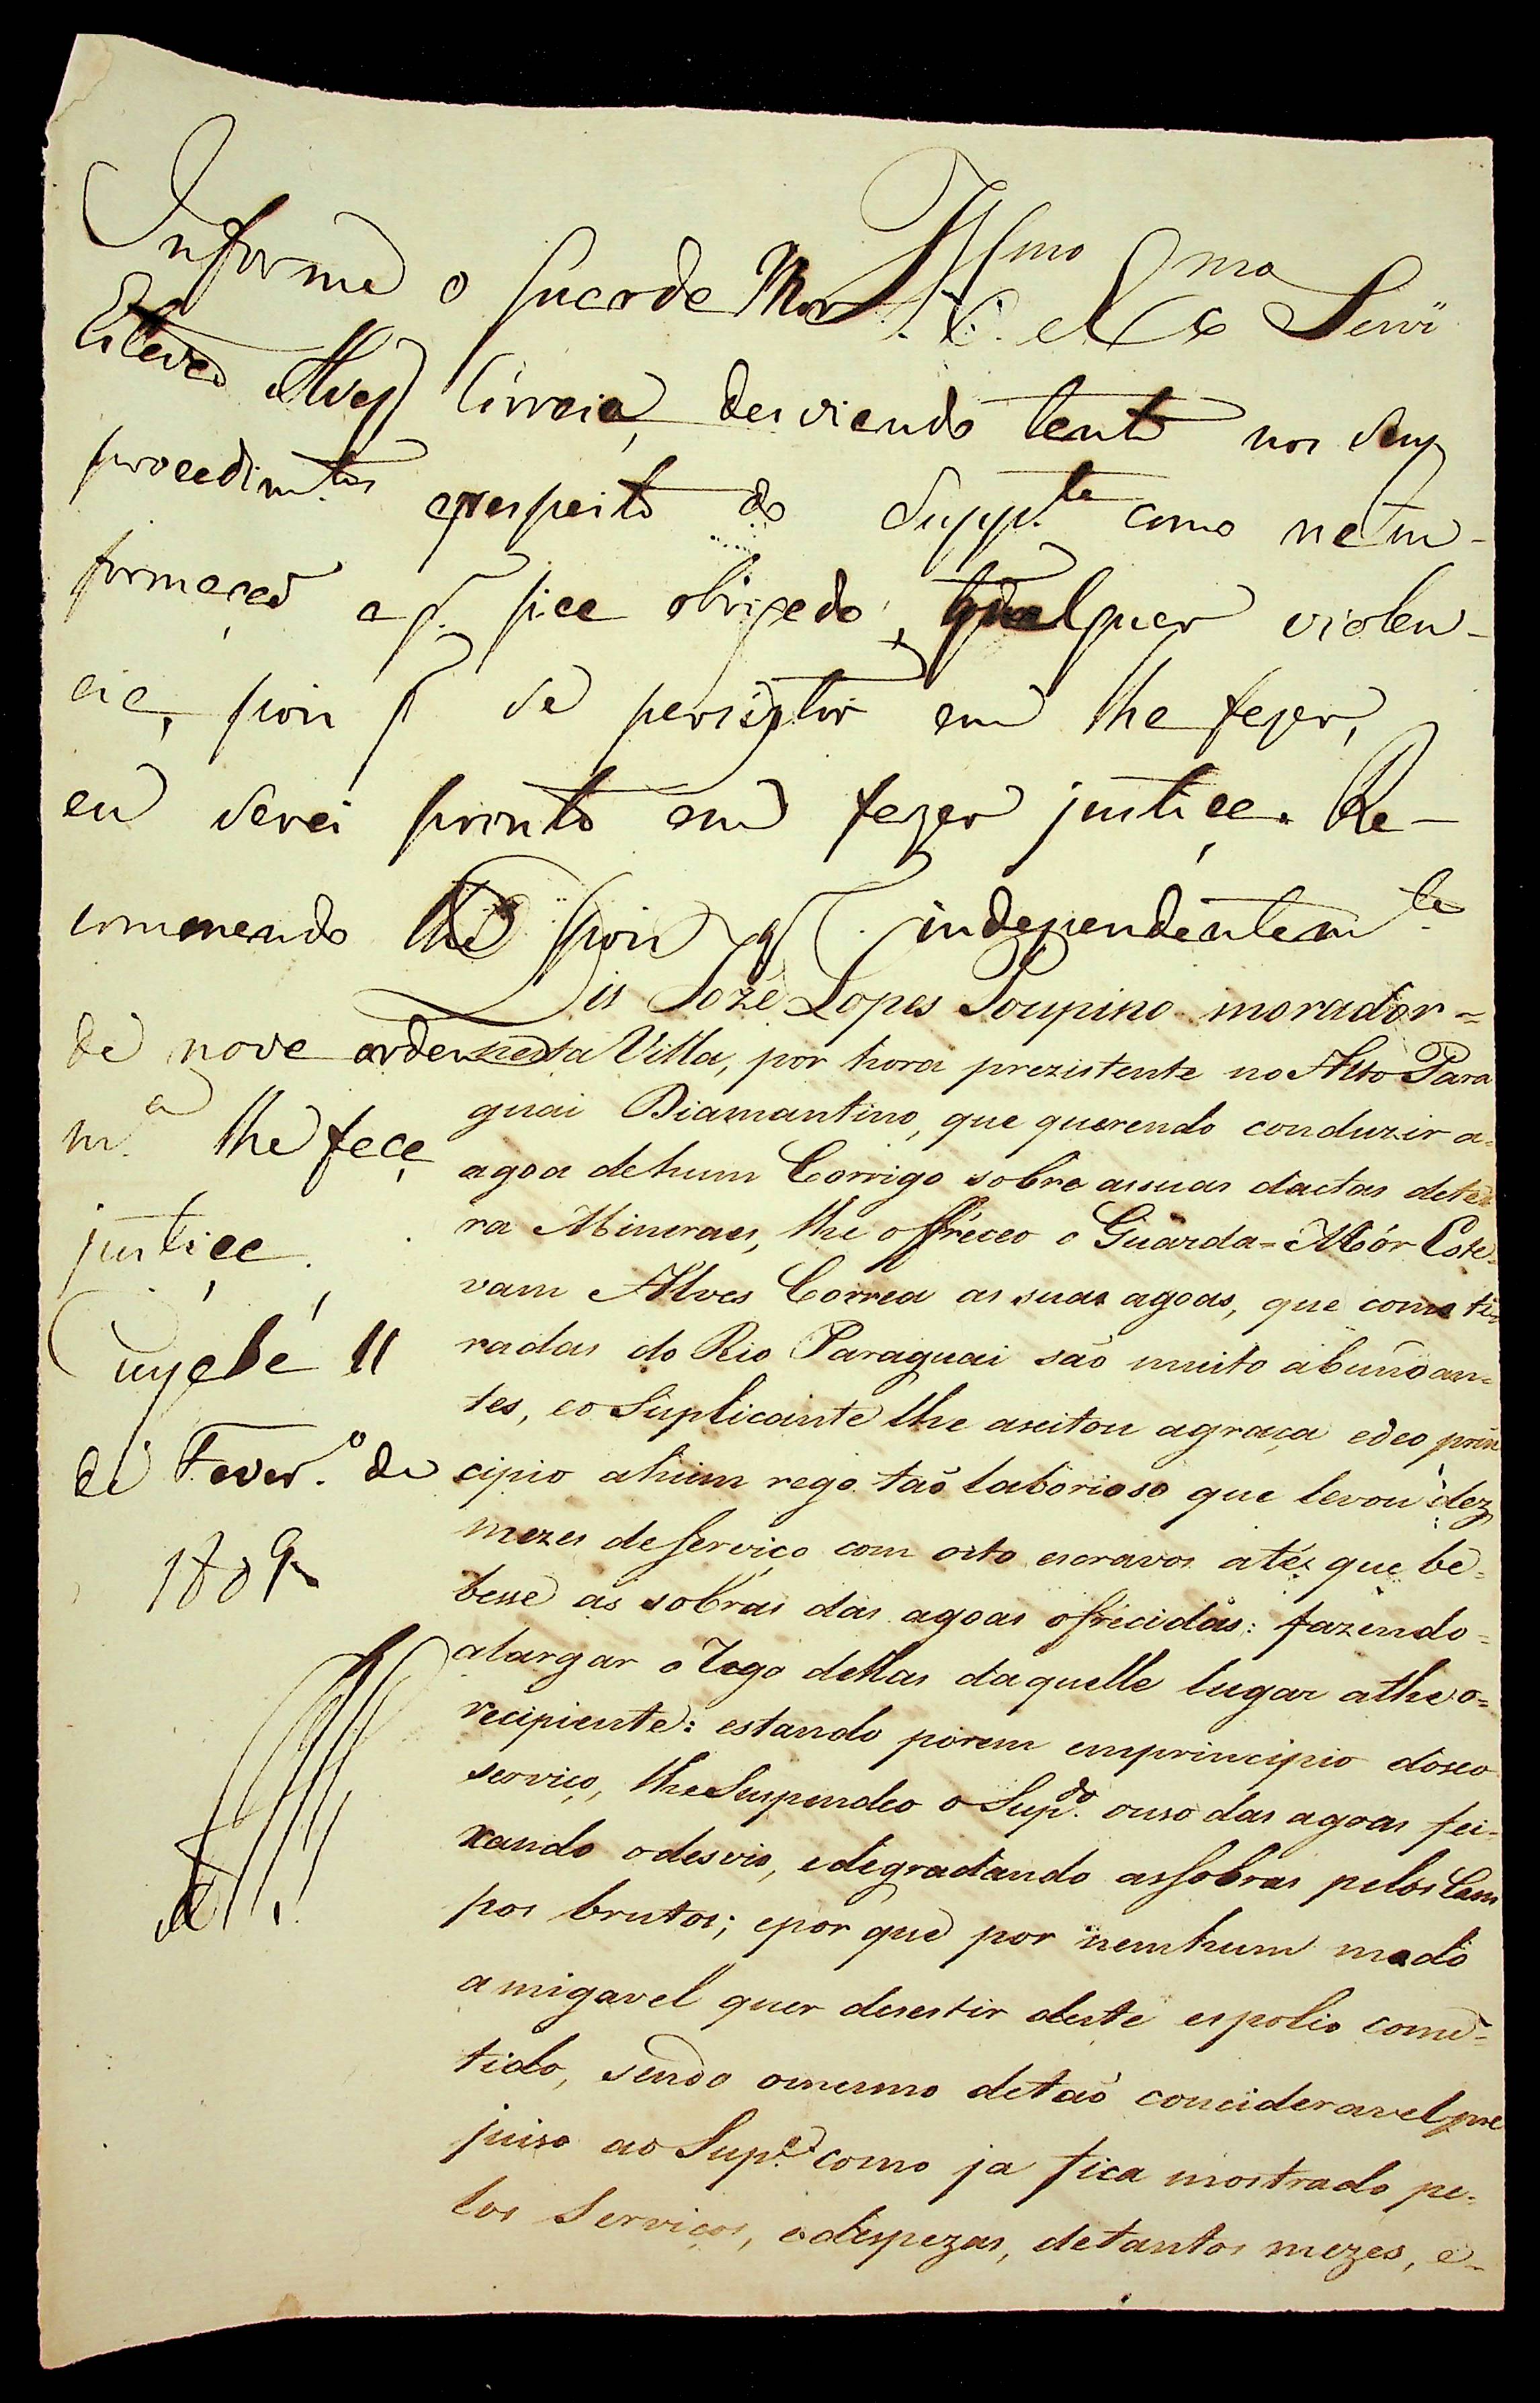 Illmo Exmo Senr
Informe o Guarda Mor
Estevaõ Alves Correia, desviando tanto nos seus
procedimtos arespeito do Suppte como na In-
formaçaõ a q. fica obrigado, qualquer violen-
cia, pois q se persistir em lhe fazer,
eu serei pronto em fazer justiça. Re-
comenendo lhe pois q. independentemte
de nova ordem
ma lhe faça
justiça.
Cuyabá 11
de Fever.o de
1809
Dis Jozé Lopes Poupino morador =
nesta Villa, por hora prezistente no Alto Para
guai Diamantino, que querendo conduzir a=
agoa dehum Corrigo sobre assuas dactas deter
ra Mineraes, lhe offréceo o Guarda=Mór Este=
vam Alves Correa as suas agoas, que como ti=
radas do Rio Paraguai saõ muito abundan=
tes, eo Suplicante lhe aseitou agraça edeo prin
cipio ahum rego taõ laborioso que levou dez
mezes deserviço com oito escravos atés que be=
besse as sobras das agoas ofricidas: fazendo=
alargar o rego dellas daquelle lugar athe o=
recipiente: estando porem emprincipio doseo
serviço, lheSuspendeo o Supdo. ouso das agoas fei=
xando odesvio, edegradando assobras pelos Cam
pos brutos; epor que por nemhum modo
amigavel quer desestir deste espolio come=
tido, sendo omesmo detaõ concideravel pre
juiso ao Supe. como ja fica mostrado pe=
los Serviços, edespezas, detantos mezes, e=